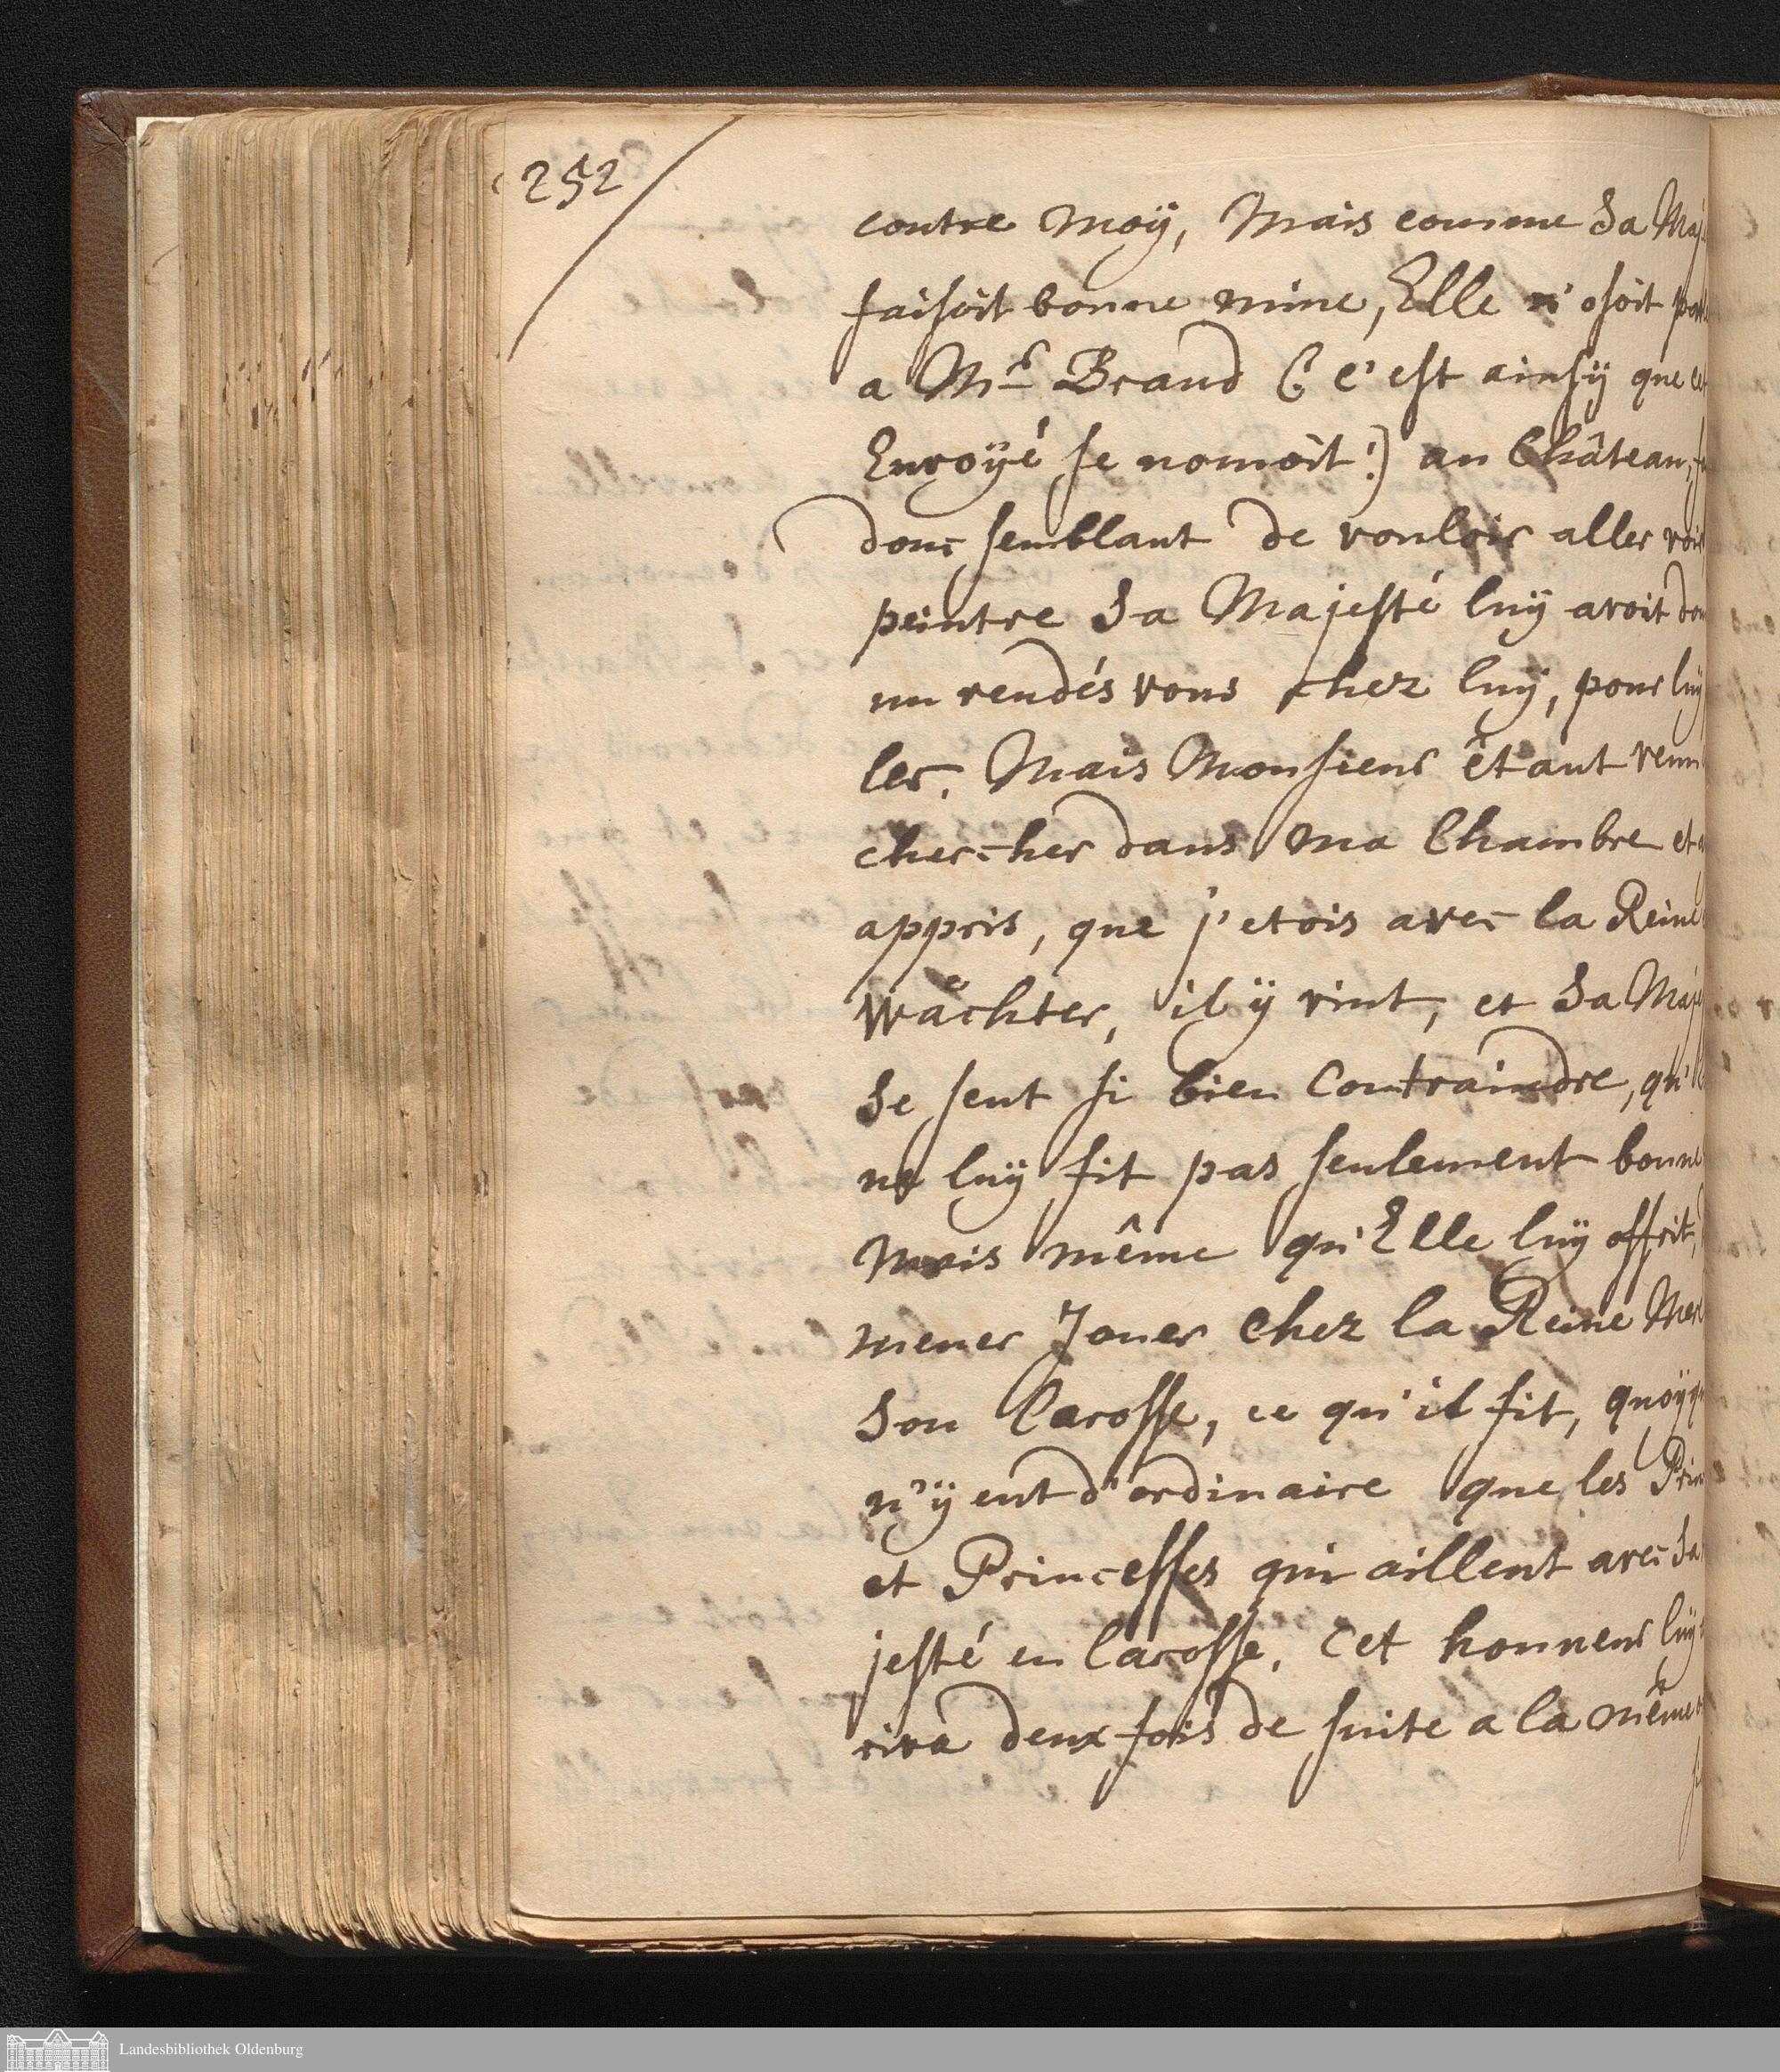 252
contre Moÿ, Mais comme Sa Maj
faisoit bonne mine, Elle n'osoit
a Mr Brand (: c'est ainsÿ que cet
Envoÿé se nomoit:) au Château,
donc semblant de vouloir aller voir
peintre Sa Majesté luÿ avoit don
un rendés vous chez luÿ, pour luÿ
ler. Mais Monsieur êtant venu
chercher dans ma Chambre et
appris, que j'etois avec la Reine
Wächter, il ÿ vint, et Sa Maje
Se seut si bien Contraindre, qu'
ne luÿ fit pas seulement bonne
Mais même qu'Elle luÿ offrit,
mener Jouer chez la Reine Mere
Son Carosse, ce qu'il fit, quoÿqu
n'ÿ eut d'ordinaire que les Prin
et Princesses qui aillent avec Sa
jesté en Carosse. Cet honneur luÿ
riva deux fois de suite a la même
Landesbibliothek Oldenburg